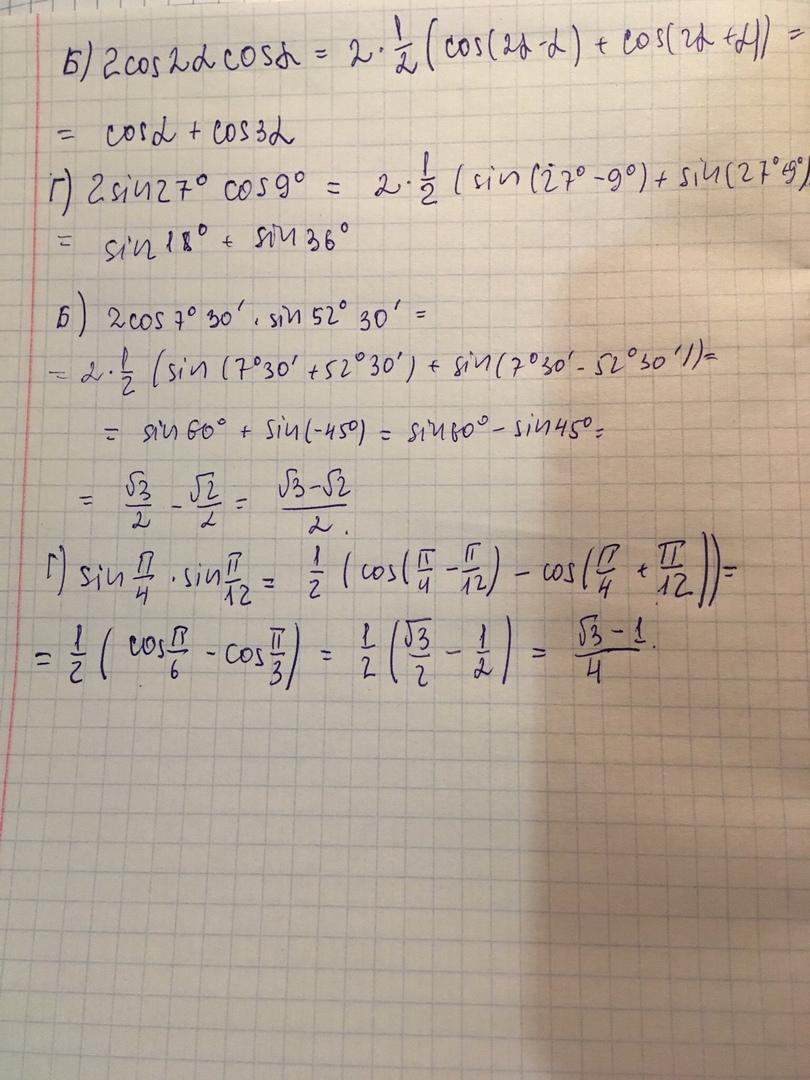 Б) 2cos2α cosα = 2·1/2(cos(2α-α) + cos(2α+α)) =
= cosα + cos3α
Г) 2sin27° cos9° = 2·1/2 (sin(27°-9°) + sin(27°+9°)
= sin18° + sin36°
Б) 2cos7°30′ · sin52°30′ =
= 2·1/2 (sin(7°30′+52°30′) + sin(7°30′-52°30′)) =
= sin60° + sin(-45°) = sin60° - sin45° =
= √3/2 - √2/2 = (√3-√2)/2.
Г) sin π/4 · sin π/12 = 1/2 (cos(π/4 - π/12) - cos(π/4 + π/12)) =
= 1/2 (cos π/6 - cos π/3) = 1/2 (√3/2 - 1/2) = (√3-1)/4.